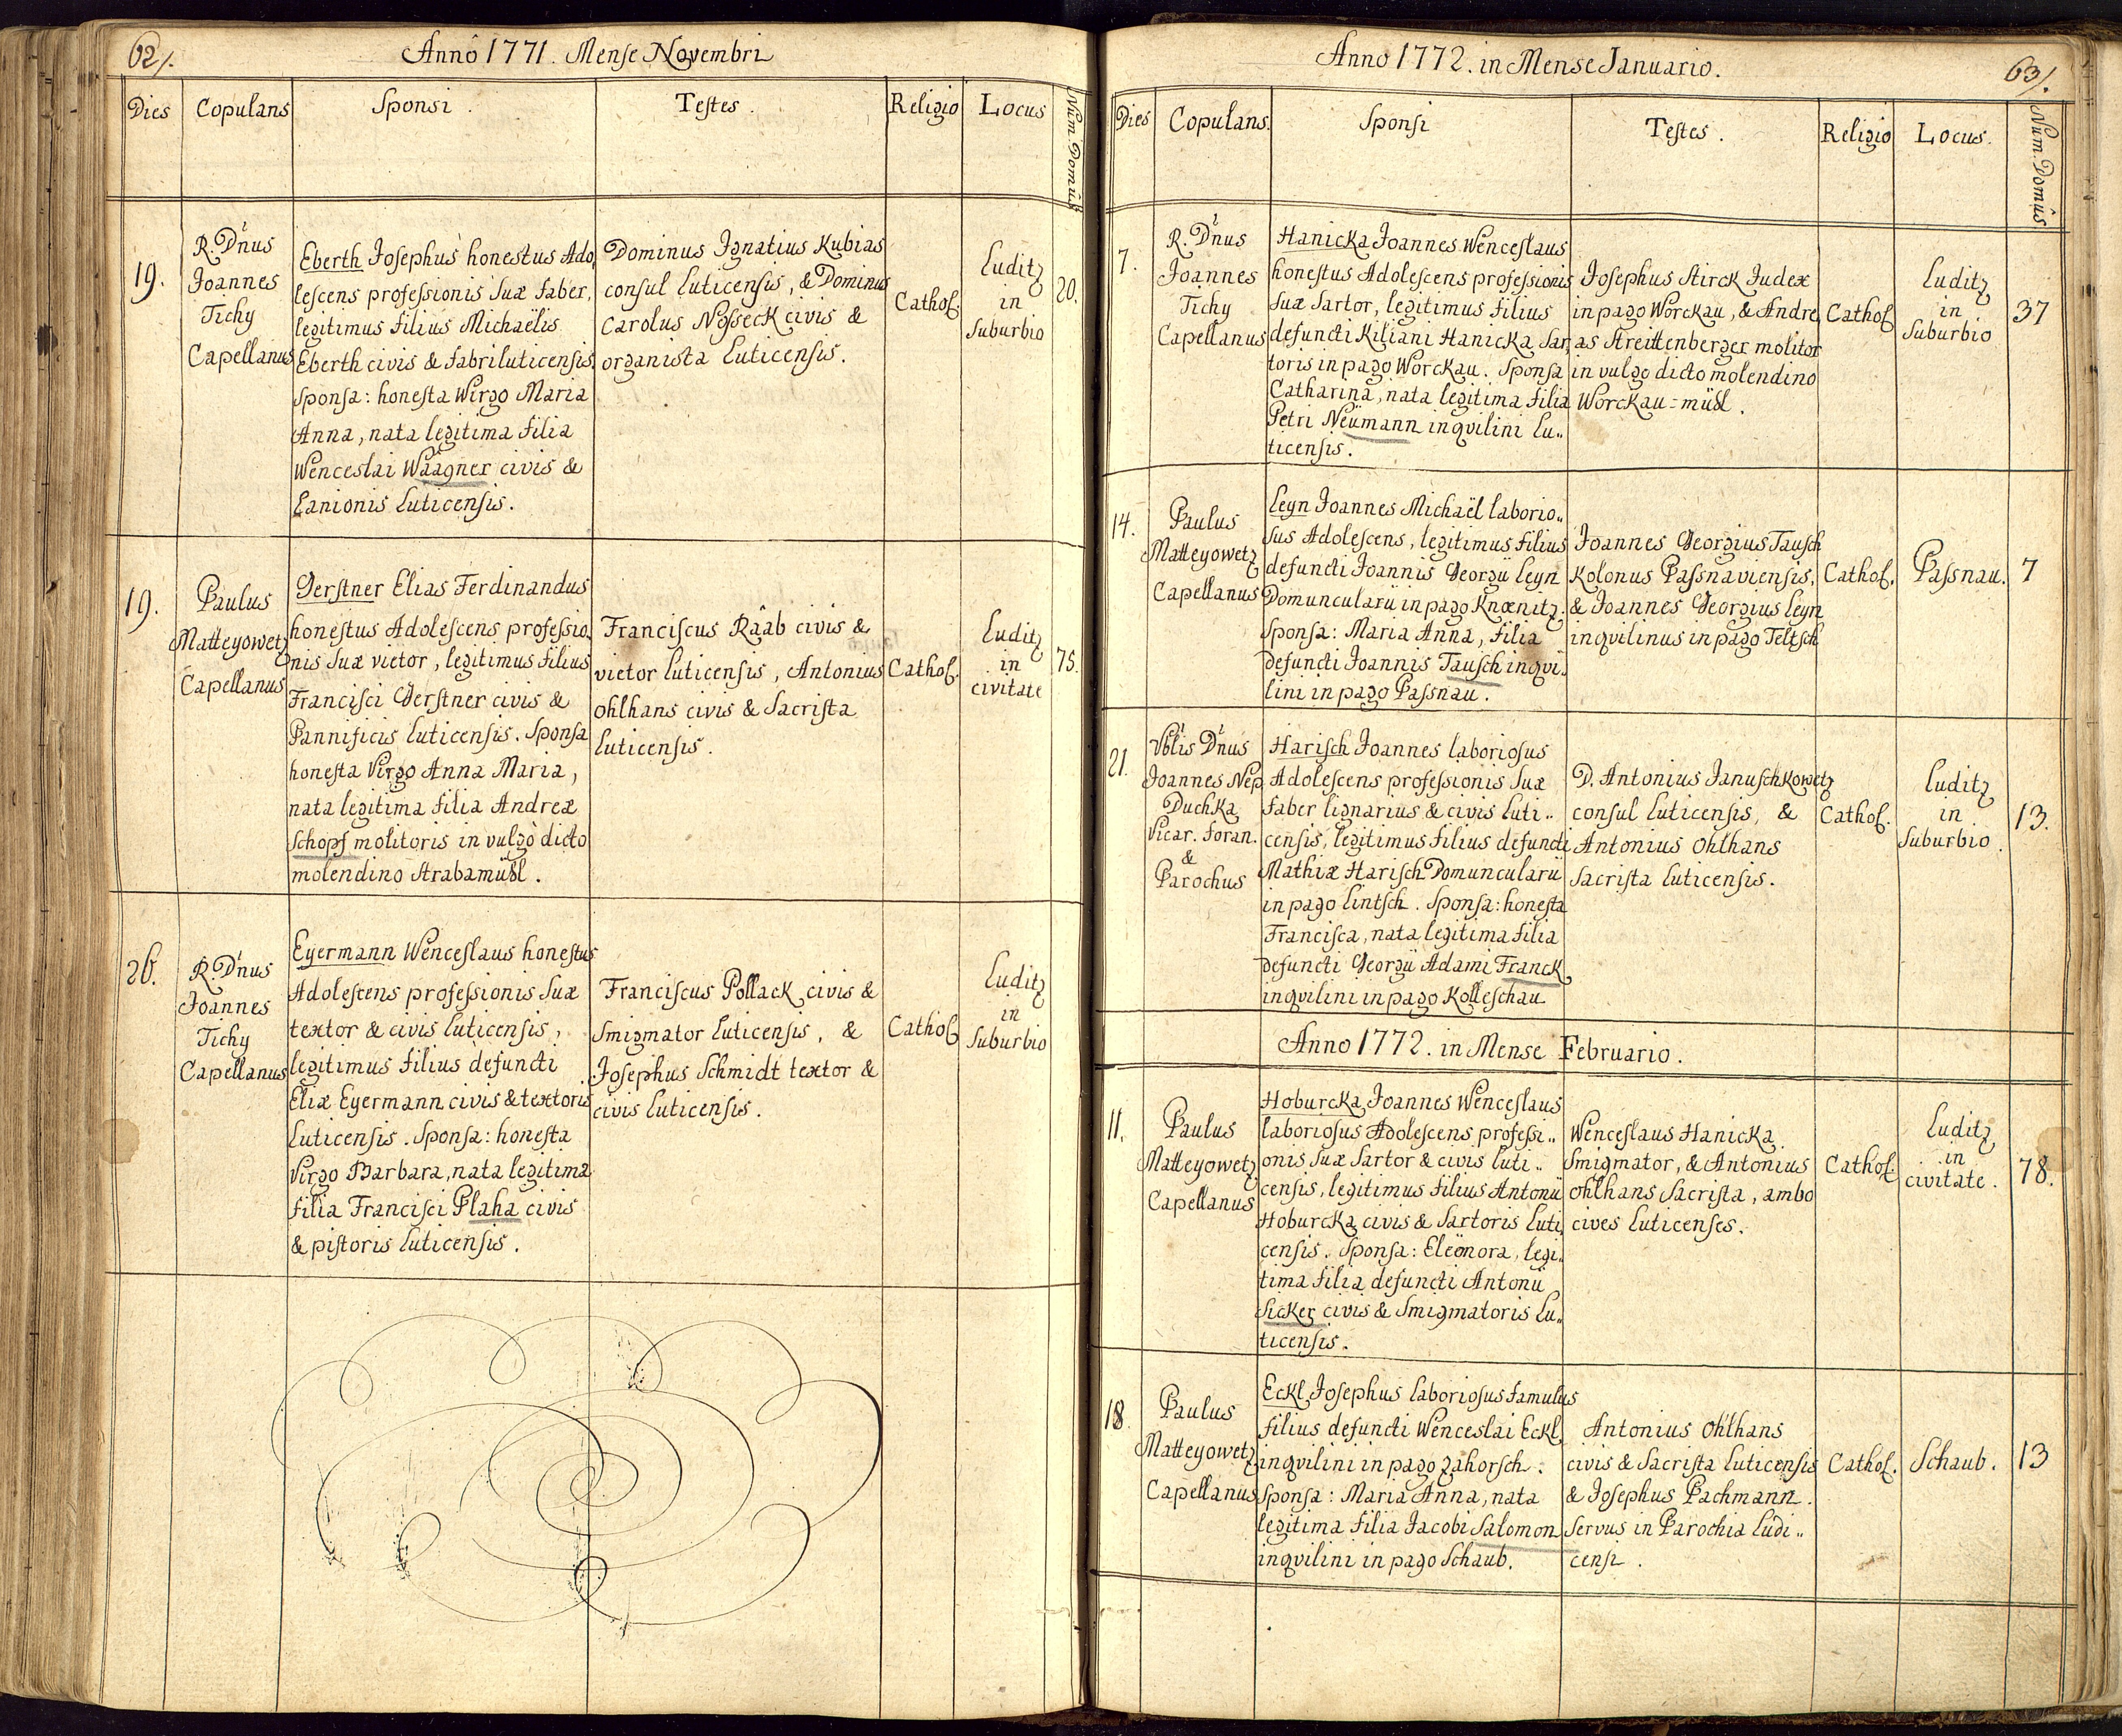 62/.
Annô 1771. Mense Novembri
Dies
Copulans
Sponsi.
Testes.
Religio
Locus
Num. Domûs
19.
R. D'nus
Joannes
Tichy
Capellanus
Eberth Josephus honestus Ado,
lescens professionis suæ faber,
legitimus filius Michaëlis
Eberth civis & fabri luticensis.
Sponsa: honesta Wirgo Maria
Anna, nata legitima filia
Wenceslai Waagner civis &
Lanionis luticensis.
Dominus Ignatius Kubias
consul luticensis, & Dominus
Carolus Nosseck civis &
organista luticensis.
Cathol.
Luditz
in
suburbio
20.
19.
Paulus
Matteyowetz
Capellanus
Gerstner Elias Ferdinandus
honestus Adolescens professio,
nis suæ vietor, legitimus filius
Francisci Gerstner civis &
Pannificis luticensis. Sponsa
honesta Virgo Anna Maria,
nata legitima filia Andreæ
Schopf molitoris in vulgò dicto
molendino Strabamühl.
Franciscus Râab civis &
vietor luticensis, Antonius
Ohlhans civis & Sacrista
luticensis.
Cathol.
Luditz
in
civitate
75.
26.
R. D'nus
Joannes
Tichy
Capellanus
Eyermann Wenceslaus honestus
Adolescens professionis suæ
textor & civis luticensis,
legitimus filius defuncti
Eliæ Eyermann civis & textoris
luticensis. Sponsa: honesta
Virgo Barbara, nata legitima
filia Francisci Plaha civis
& pistoris luticensis.
Franciscus Pollack civis &
Smigmator luticensis, &
Josephus Schmidt textor &
civis luticensis.
Cathol.
Luditz
in
suburbio
Anno 1772. in Mense Januario.
63/.
Dies
Copulans.
Sponsi
Testes.
Religio
Locus.
Num. Domûs
7.
R. D'nus
Joannes
Tichy
Capellanus
Hanicka Joannes Wenceslaus
honestus Adolescens professionis
suæ sartor, legitimus filius
defuncti Kiliani Hanicka sar,
toris in pago Worckau. Sponsa
Catharina, nata legitima filia
Petri Neümann inqvilini lu..
ticensis.
Josephus Stirck Judex
in pago Worckau, & Andre,
as Streittenberger molitor
in vulgo dicto molendino
Worckau=mühl.
Cathol.
Luditz
in
suburbio
37
14.
Paulus
Matteyowetz
Capellanus
Leyn Joannes Michaël laborio..
sus Adolescens, legitimus filius
defuncti Joannis Georgii Leyn
Domuncularii in pago Knœnitz.
Sponsa: Maria Anna, filia
defuncti Joannis Tausch inqvi..
lini in pago Passnau.
Joannes Georgius Tausch
Kolonus Passnaviensis,
& Joannes Georgius Leyn
inqvilinus in pago Teltsch
Cathol.
Passnau.
7
21.
Vblis D'nus
Joannes Nep.
Duchka
Vicar. foran.
&
Parochus
Harisch Joannes laboriosus
Adolescens professionis suæ
faber lignarius & civis luti..
censis, legitimus filius defuncti
Mathiæ Harisch Domuncularii
in pago Lintsch. Sponsa: honesta
Francisca, nata legitima filia
defuncti Georgii Adami Franck
inqvilini in pago Kolleschau
D. Antonius Januschkowetz
consul luticensis, &
Antonius Ohlhans
Sacrista luticensis.
Cathol.
Luditz
in
suburbio.
13.
Anno 1772. in Mense Februario.
11.
Paulus
Matteyowetz
Capellanus
Hoburcka Joannes Wenceslaus
laboriosus Adolescens professi..
onis suæ sartor & civis luti..
censis, legitimus filius Antonii
Hoburcka civis & sartoris luti,
censis. Sponsa: Eleönora, legi..
tima filia defuncti Antonii
Sicker civis & Smigmatoris lu..
ticensis.
Wenceslaus Hanicka
Smigmator, & Antonius
Ohlhans Sacrista, ambo
cives luticenses.
Cathol.
Luditz
in
civitate.
78.
18.
Paulus
Matteyowetz
Capellanus
Eckl Josephus laboriosus famulus
filius defuncti Wenceslai Eckl
inqvilini in pago Zahorsch.
Sponsa: Maria Anna, nata
legitima filia Jacobi Salomon
inqvilini in pago Schaub.
Antonius Ohlhans
civis & Sacrista luticensis
& Josephus Pachmann
servus in Parochia Ludi..
censi.
Cathol.
Schaub.
13